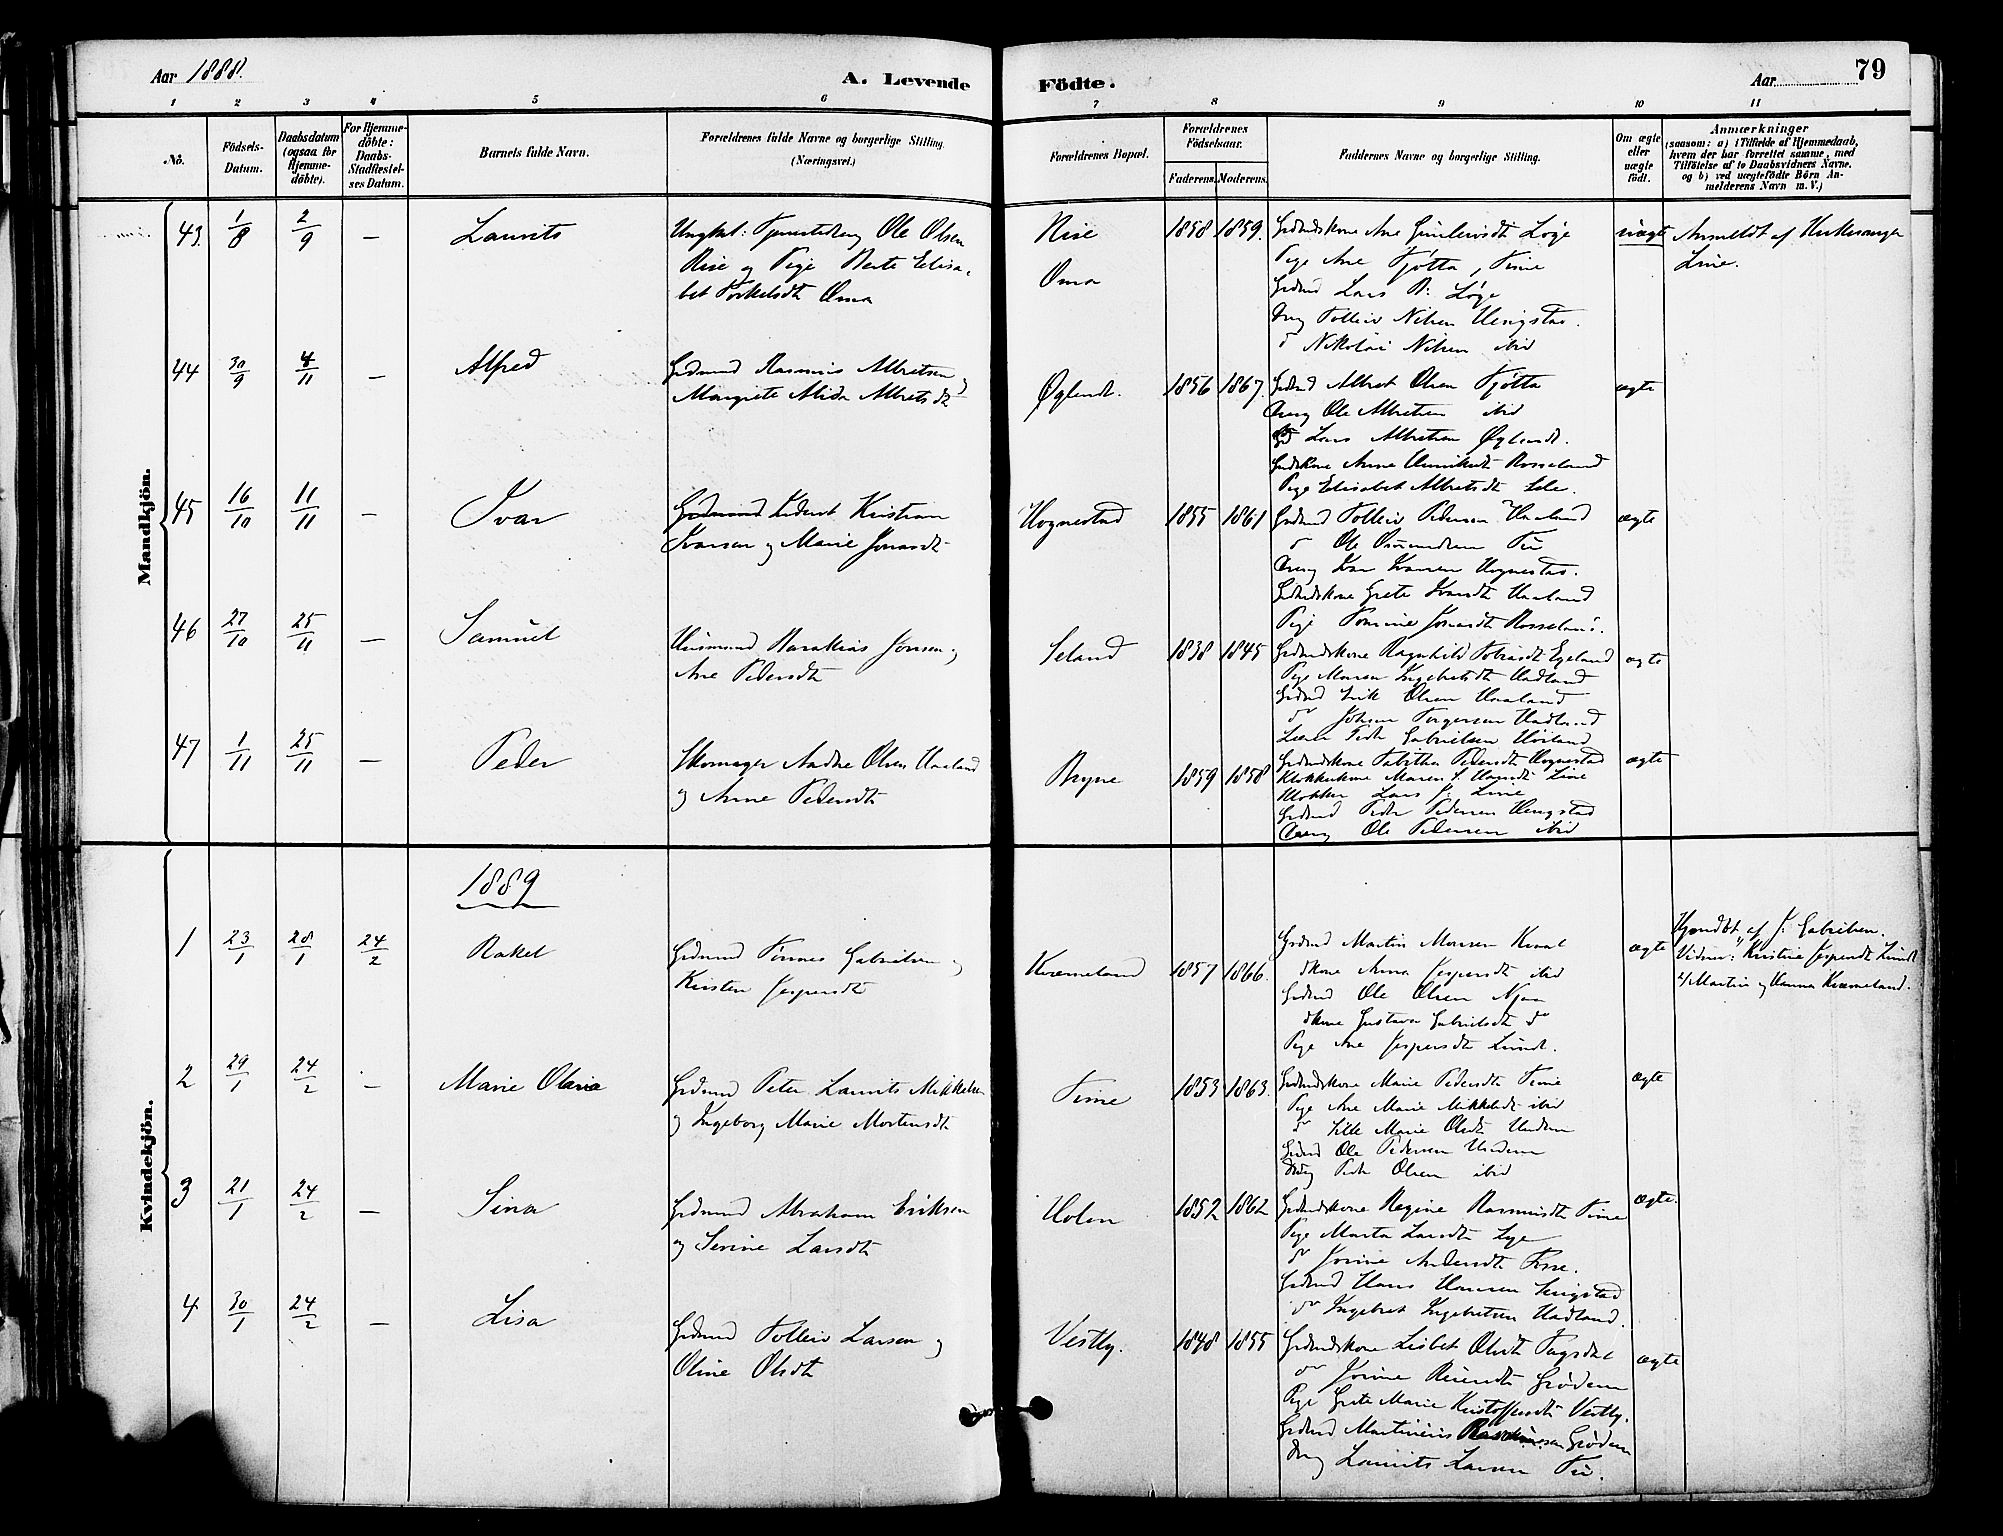 Aar 1888.
A. Levende
Födte.
Aar
79
1 2 3 4 5 6 7 8 9 10 11
No.
Födsels-Datum.
Daabsdatum (ogsaa for Hjemme-döbte).
For Hjemme-döbte: Daabs-Stadfæstel-ses Datum.
Barnets fulde Navn.
Forældrenes fulde Navne og borgerlige Stilling. (Næringsvei.)
Forældrenes Bopæl.
Forældrenes Födselsaar.
Faderens. Moderens.
Faddernes Navne og borgerlige Stilling.
Om ægte eller uægte födt.
Anmærkninger
(saasom: a) i Tilfælde af Hjemmedaab, hvem der har forrettet samme, med Tilföielse af to Daabsvidners Navne. og b) ved uægtefödte Börn Anmelderens Navn m. V.)
Mandkjön.
43. 1/8 2/9 — Laurits
Ungkal: Tjenestedreng Ole Olsen
Rise og Pige Berte Elisa-
bet Torkelsdt Oma
Rise
Oma
1858 1859.
Grdmdskone Ane Gunleivsdt Løge
Pige Ane Tjøtta, Time
Grdmd Lars B: Løge
Dreng Tolleiv Nilsen Hengstad.
do Nikolai Nilsen ibid
uægte
Anmeldt af Kirkesanger
Line.
44 30/9 4/11 — Alfred
Grdmand Rasmus Albretsen og
Margrete Alida Albretsdt
Øglendt. 1856 1867.
Grdmd Albret Olsen Tjøtta
Dreng Ole Albretsen ibid
Lars Albretsen Øglendt.
Grdmdskone Anne Henriksdt Rosseland
Pige Elisabet Albretsdt Lele.
ægte
45 16/10 11/11 — Ivar
Kristian
Ivarsen og Marie Jonasdt
Hognestad 1855 1861
Grdmd Tolleiv Pedersen Haaland
do Ole Tu
Dreng Ivar Ivarsen Hognestad.
Grdmdskone Grete Ivarsdt Haaland
Pige Tomine Jonasdt Rosseland.
ægte
46 27/10 25/11 — Samuel
Husmand Barakias Jonsen og
Ane Pedersdt
Seland 1838 1845
Grdmdskone Ragnhild Tobiasdt Egeland
Pige Maren Ingebretsdt Hadland
Grdmd Erik Olsen Haaland
do Johan Torgersen Hadland
Peder Gabrielsen Høiland
ægte
47 1/11 25/11 — Peder
Skomager Andre Olsen Haaland
og Anne Pedersdt
Bryne 1859 1858
Grdmdskone Tabitha Pedersdt Hognestad
Klokkerkone Maren S. Line
Klokker Lars J: Line
Grdmd Peder Pedersen Hengstad
Dreng Ole Pedersen ibid
ægte
Kvindekjön.
1889
1 23/1 28/1 24/2 Rakel
Grdmand Tønnes Gabrielsen og
Kirsten Jespersdt
Kverneland 1857 1866.
Grdmd Martin Monsen Kvaal
dkone Anna Jespersdt ibid
Grdmd Ole Olsen Njaa
dkone Gustava Gabrielsdt do
Pige Ane Jespersdt Lunde.
ægte
Hjemdøbt af J. Gabrielsen.
Vidner: 1) Kristine Jespersdt Lunde
2) Martin og Hanna Kverneland.
2 29/1 24/2 — Marie Olava
Grdmand Peter Laurits Mikkelsen
og Ingeborg Marie Mortensdt
Time 1853 1863.
Grdmdskone Marie Pedersdt Time
Pige Ane Marie Mikkelsdt ibid
do Sille Marie Olsdt Undem
Grdmd Ole Pedersen Undem
Dreng Peder Olsen ibid
ægte
3 21/1 24/2 — Sina
Grdmand Abraham Eriksen
og Serine Larsdt
Holen 1852 1862
Grdmdskone Regine Rasmusdt Time
Pige Marta Larsdt Lye
do Jorine Andersdt Fosse.
Grdmd Hans Hansen Sengstad
do Ingebret Ingebretsen Hadland.
ægte.
4 30/1 24/2 — Lisa
Grdmand Tolleiv Larsen og
Oline Olsdt
Vestly. 1848 1855
Grdmdskone Lisbet Olsdt Tugsdal
do Jorine Reiersdt Grødem
Pige Grete Marie Kristoffersdt Vestly.
Grdmd Martinius Rasmussen Grødem
Dreng Laurits Larsen Tu.
ægte